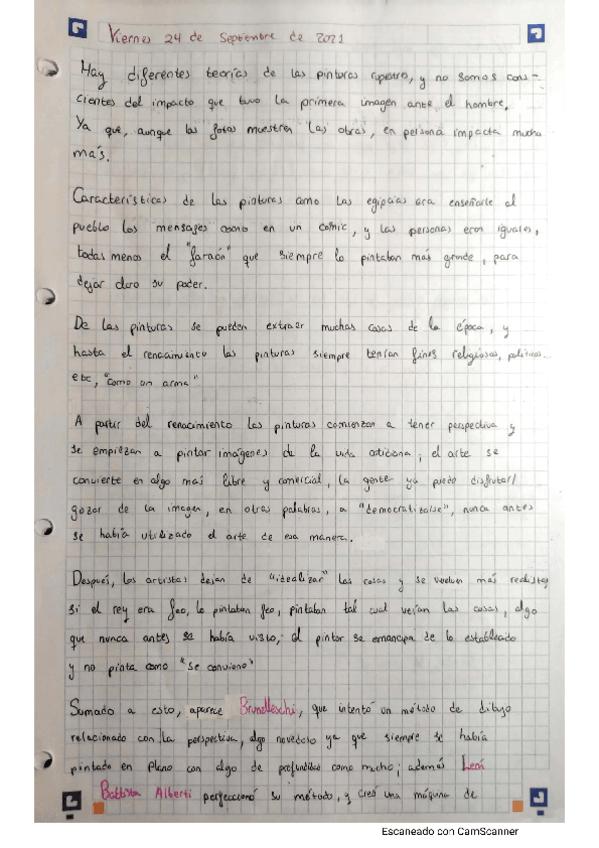 Viernes 24 de Septiembre de 2021
Hay diferentes teorías de las pinturas rupestres, y no somos cons-
cientes del impacto que tuvo la primera imagen ante el hombre.
Ya que, aunque las fotos muestren las obras, en persona impacta mucho
más.
Características de las pinturas como las egipcias era enseñarle al
pueblo los mensajes como en un cómic, y las personas eran iguales,
todas menos el "faraón" que siempre lo pintaban más grande, para
dejar claro su poder.
De las pinturas se pueden extraer muchas cosas de la época, y
hasta el renacimiento las pinturas siempre tenían fines religiosos, políticos..
etc, "como un arma"
A partir del renacimiento las pinturas comienzan a tener perspectiva y
se empiezan a pintar imágenes de la vida cotidiana, el arte se
convierte en algo más libre y comercial, la gente ya puede disfrutar/
gozar de la imagen, en otras palabras, a "democratizarse", nunca antes
se había utilizado el arte de esa manera.
Después, los artistas dejan de "idealizar" las cosas y se vuelven más realistas
si el rey era feo, lo pintaban feo, pintaban tal cual veían las cosas, algo
que nunca antes se había visto, el pintor se emancipa de lo establecido
y no pinta como "se convieno"
Sumado a esto, aparece Brunelleschi, que intentó un método de dibujo
relacionado con la perspectiva, algo novedoso ya que siempre se había
pintado en plano con algo de profundidad como mucho; además León
Battista Alberti perfeccionó su método, y creó una máquina de
Escaneado con CamScanner